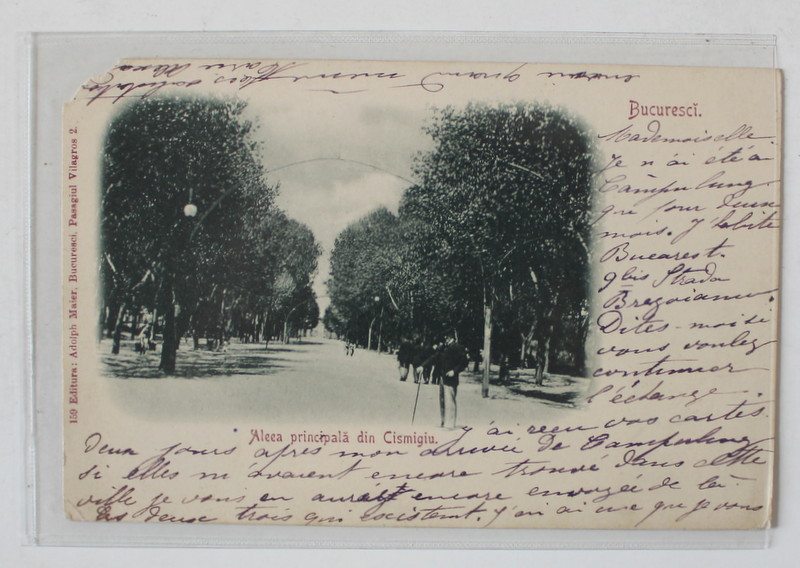 Bucurescĭ.
Mademoiselle.
Je n'ai été à
Câmpulung
que pour deux
mois. J'habite
Bucarest.
9 bis Strada
Brezoianu.
Dites-moi si
vous voulez
continuer
l'échange.
J'ai reçu vos cartes
deux jours après mon arrivée de Campulung
si elles m'avaient encore trouvé dans cette
ville je vous en aurais encore envoyée de là
les deux trois qui existent. J'en ai que je vous
Aleea principală din Cismigiu.
159 Editura: Adolph Maier, Bucuresci, Pasagiul Vilagros 2.